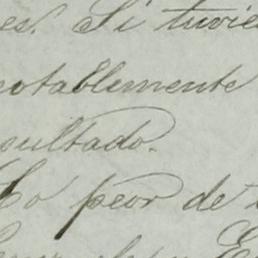 es. Si tuvie
notablemente
sultado.
Lo peor de t